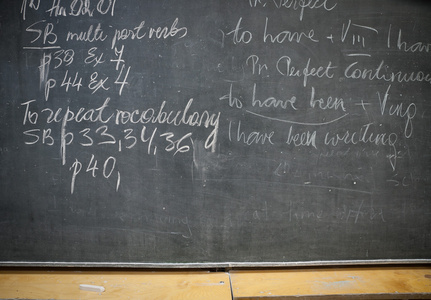 SB multi part verbs
p39 Ex 7
p44 Ex 4
To repeat vocabulary
SB p33,34,36,
p40,
Pr. Perfect
to have + VIII I have
Pr. Perfect Continuou
to have been + Ving
I have been writing